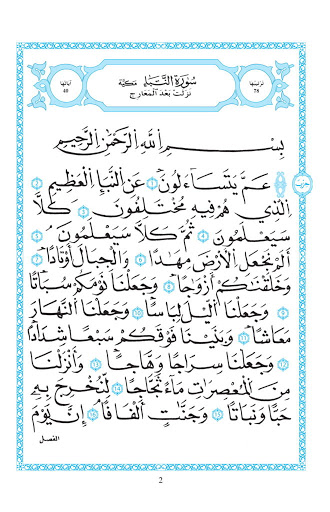 ترتيبها
78
سُورَةُ النَّبَإِ مَكِّيَّة
نزلت بعد المعارج
آياتها
40
بِسْمِ اللَّهِ الرَّحْمَٰنِ الرَّحِيمِ
عَمَّ يَتَسَاءَلُونَ ۝١ عَنِ النَّبَإِ الْعَظِيمِ ۝٢
الَّذِي هُمْ فِيهِ مُخْتَلِفُونَ ۝٣ كَلَّا
سَيَعْلَمُونَ ۝٤ ثُمَّ كَلَّا سَيَعْلَمُونَ ۝٥
أَلَمْ نَجْعَلِ الْأَرْضَ مِهَٰدًا ۝٦ وَالْجِبَالَ أَوْتَادًا ۝٧
وَخَلَقْنَٰكُمْ أَزْوَٰجًا ۝٨ وَجَعَلْنَا نَوْمَكُمْ سُبَاتًا
۝٩ وَجَعَلْنَا الَّيْلَ لِبَاسًا ۝١٠ وَجَعَلْنَا النَّهَارَ
مَعَاشًا ۝١١ وَبَنَيْنَا فَوْقَكُمْ سَبْعًا شِدَادًا
۝١٢ وَجَعَلْنَا سِرَاجًا وَهَّاجًا ۝١٣ وَأَنزَلْنَا
مِنَ الْمُعْصِرَٰتِ مَاءً ثَجَّاجًا ۝١٤ لِّنُخْرِجَ بِهِ
حَبًّا وَنَبَاتًا ۝١٥ وَجَنَّٰتٍ أَلْفَافًا ۝١٦ إِنَّ يَوْمَ
الفصل
2